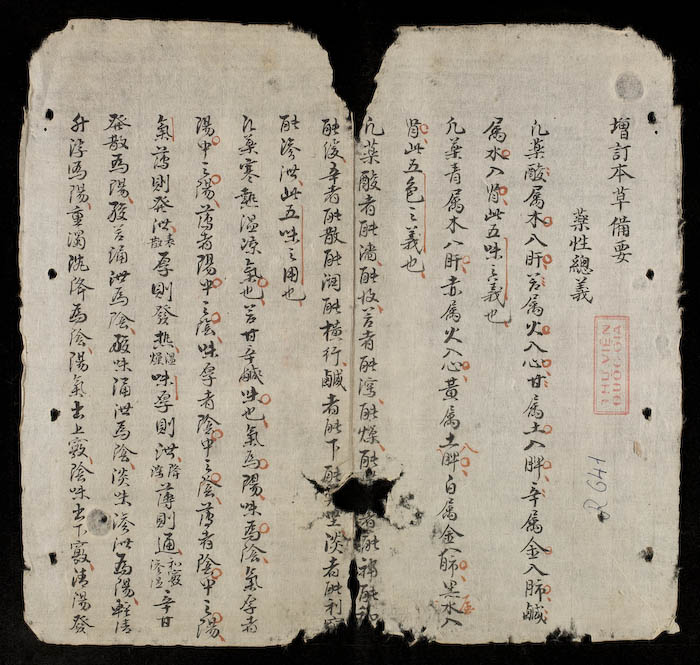 增訂本草備要
藥性總義
凡藥酸属木入肝苦属火入心甘属土入脾辛属金入肺鹹
属水入腎此五味之義也
凡藥青属木入肝赤属火入心黄属土入脾白属金入肺黑属水入
腎此五色之義也
凡藥酸者能濇能收苦者能瀉能燥能者能補能和
能緩辛者能散能潤能橫行鹹者能下能堅淡者能利
能滲泄此五味之用也
凡藥寒熱温凉氣也苦甘辛鹹味也氣為陽味為陰氣厚者
陽中之陽薄者陽中之陰味厚者陰中之陰薄者陰中之陽
氣薄則發泄表散厚則發热温燥味厚則泄降瀉薄則通利竅滲湿辛甘
發散為陽酸苦涌泄為陰酸味涌泄為陰淡味滲泄為陽輕清
升浮為陽重濁沉降為陰陽氣出上竅陰味出下竅清陽發
THƯ VIỆN
QUỐC GIA
R 641